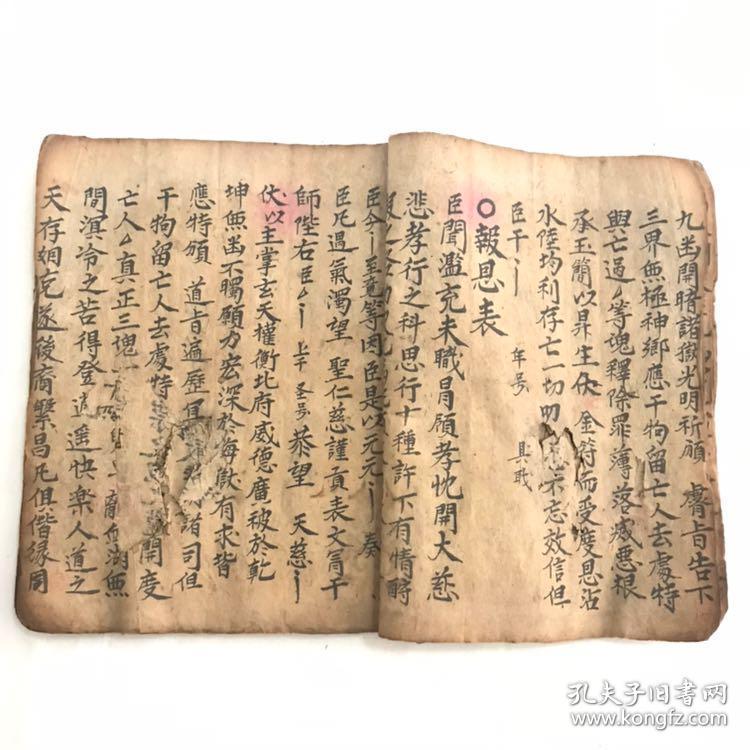 九幽開暗諸獄光明祈願 睿旨告下
三界無極神鄉應干拘留亡人去處特
與亡過〻等魂釋除罪簿落滅惡根
承玉簡以昇生仗 金符而受度恩沾
水陸均利存亡一切 忘效信但
臣干〻 年号 具職
○報恩表
臣聞濫充末職冐領孝忱開大慈
悲孝行之科思行十種許下有情酧
臣今〻至竟等因臣是以元元〻奏
臣凢過氣濁望 聖仁慈謹貢表文冩干
師陛右臣〻 上干 圣号 恭望 天慈〻
伏以主掌玄天權衡北府威德廣被於乾
坤無幽不矚願力宏深於海獄有求皆
應特頒 道旨遍歴 諸司但
干拘留亡人去處特 開度
亡人〻真正三魂 血湖無
間溟冷之苦得登逍遥快楽人道之
天存 後裔繁昌凢但偕缘同
孔夫子旧书网
www.kongfz.com